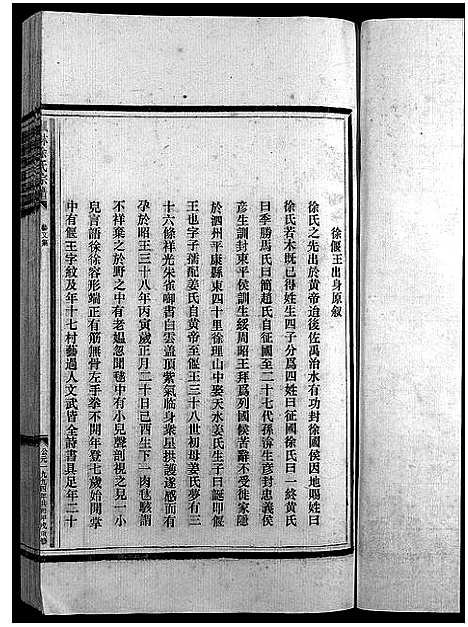 徐偃王出身原叙
徐氏之先出於黃帝迨後佐禹治水有功封徐國侯因地賜姓曰
徐氏若木既已得姓生四子分爲四姓曰征國徐氏曰一終黃氏
曰季勝馬氏曰簡趙氏自征國至二十七代孫濟生彦封忠義侯
彦生訓封東平侯訓生綏周昭王拜爲列國候苦辭不受徙家隱
於泗州平康縣東四十里徐理山中娶天水姜氏生子曰誕即偃
王也字子孺配姜氏自黃帝至偃王三十八世初母姜氏夢有三
十六條祥光朱雀啣書白雲蓋頂紫氣临身衆星拱護遂感而有
孕於昭王三十八年丙寅歲正月二十日己酉生下一肉毬駭謂
不祥棄之於野之中有老媪忽聞毬中有小兒聲剖視之見一小
兒言語徐徐容形端正有筋無骨左手拳不開年登七歲始開掌
中有偃王字紋及年十七村藝過人文武皆全詩書具足年二十
徐氏宗譜
藝文集
公元一九九四年歲